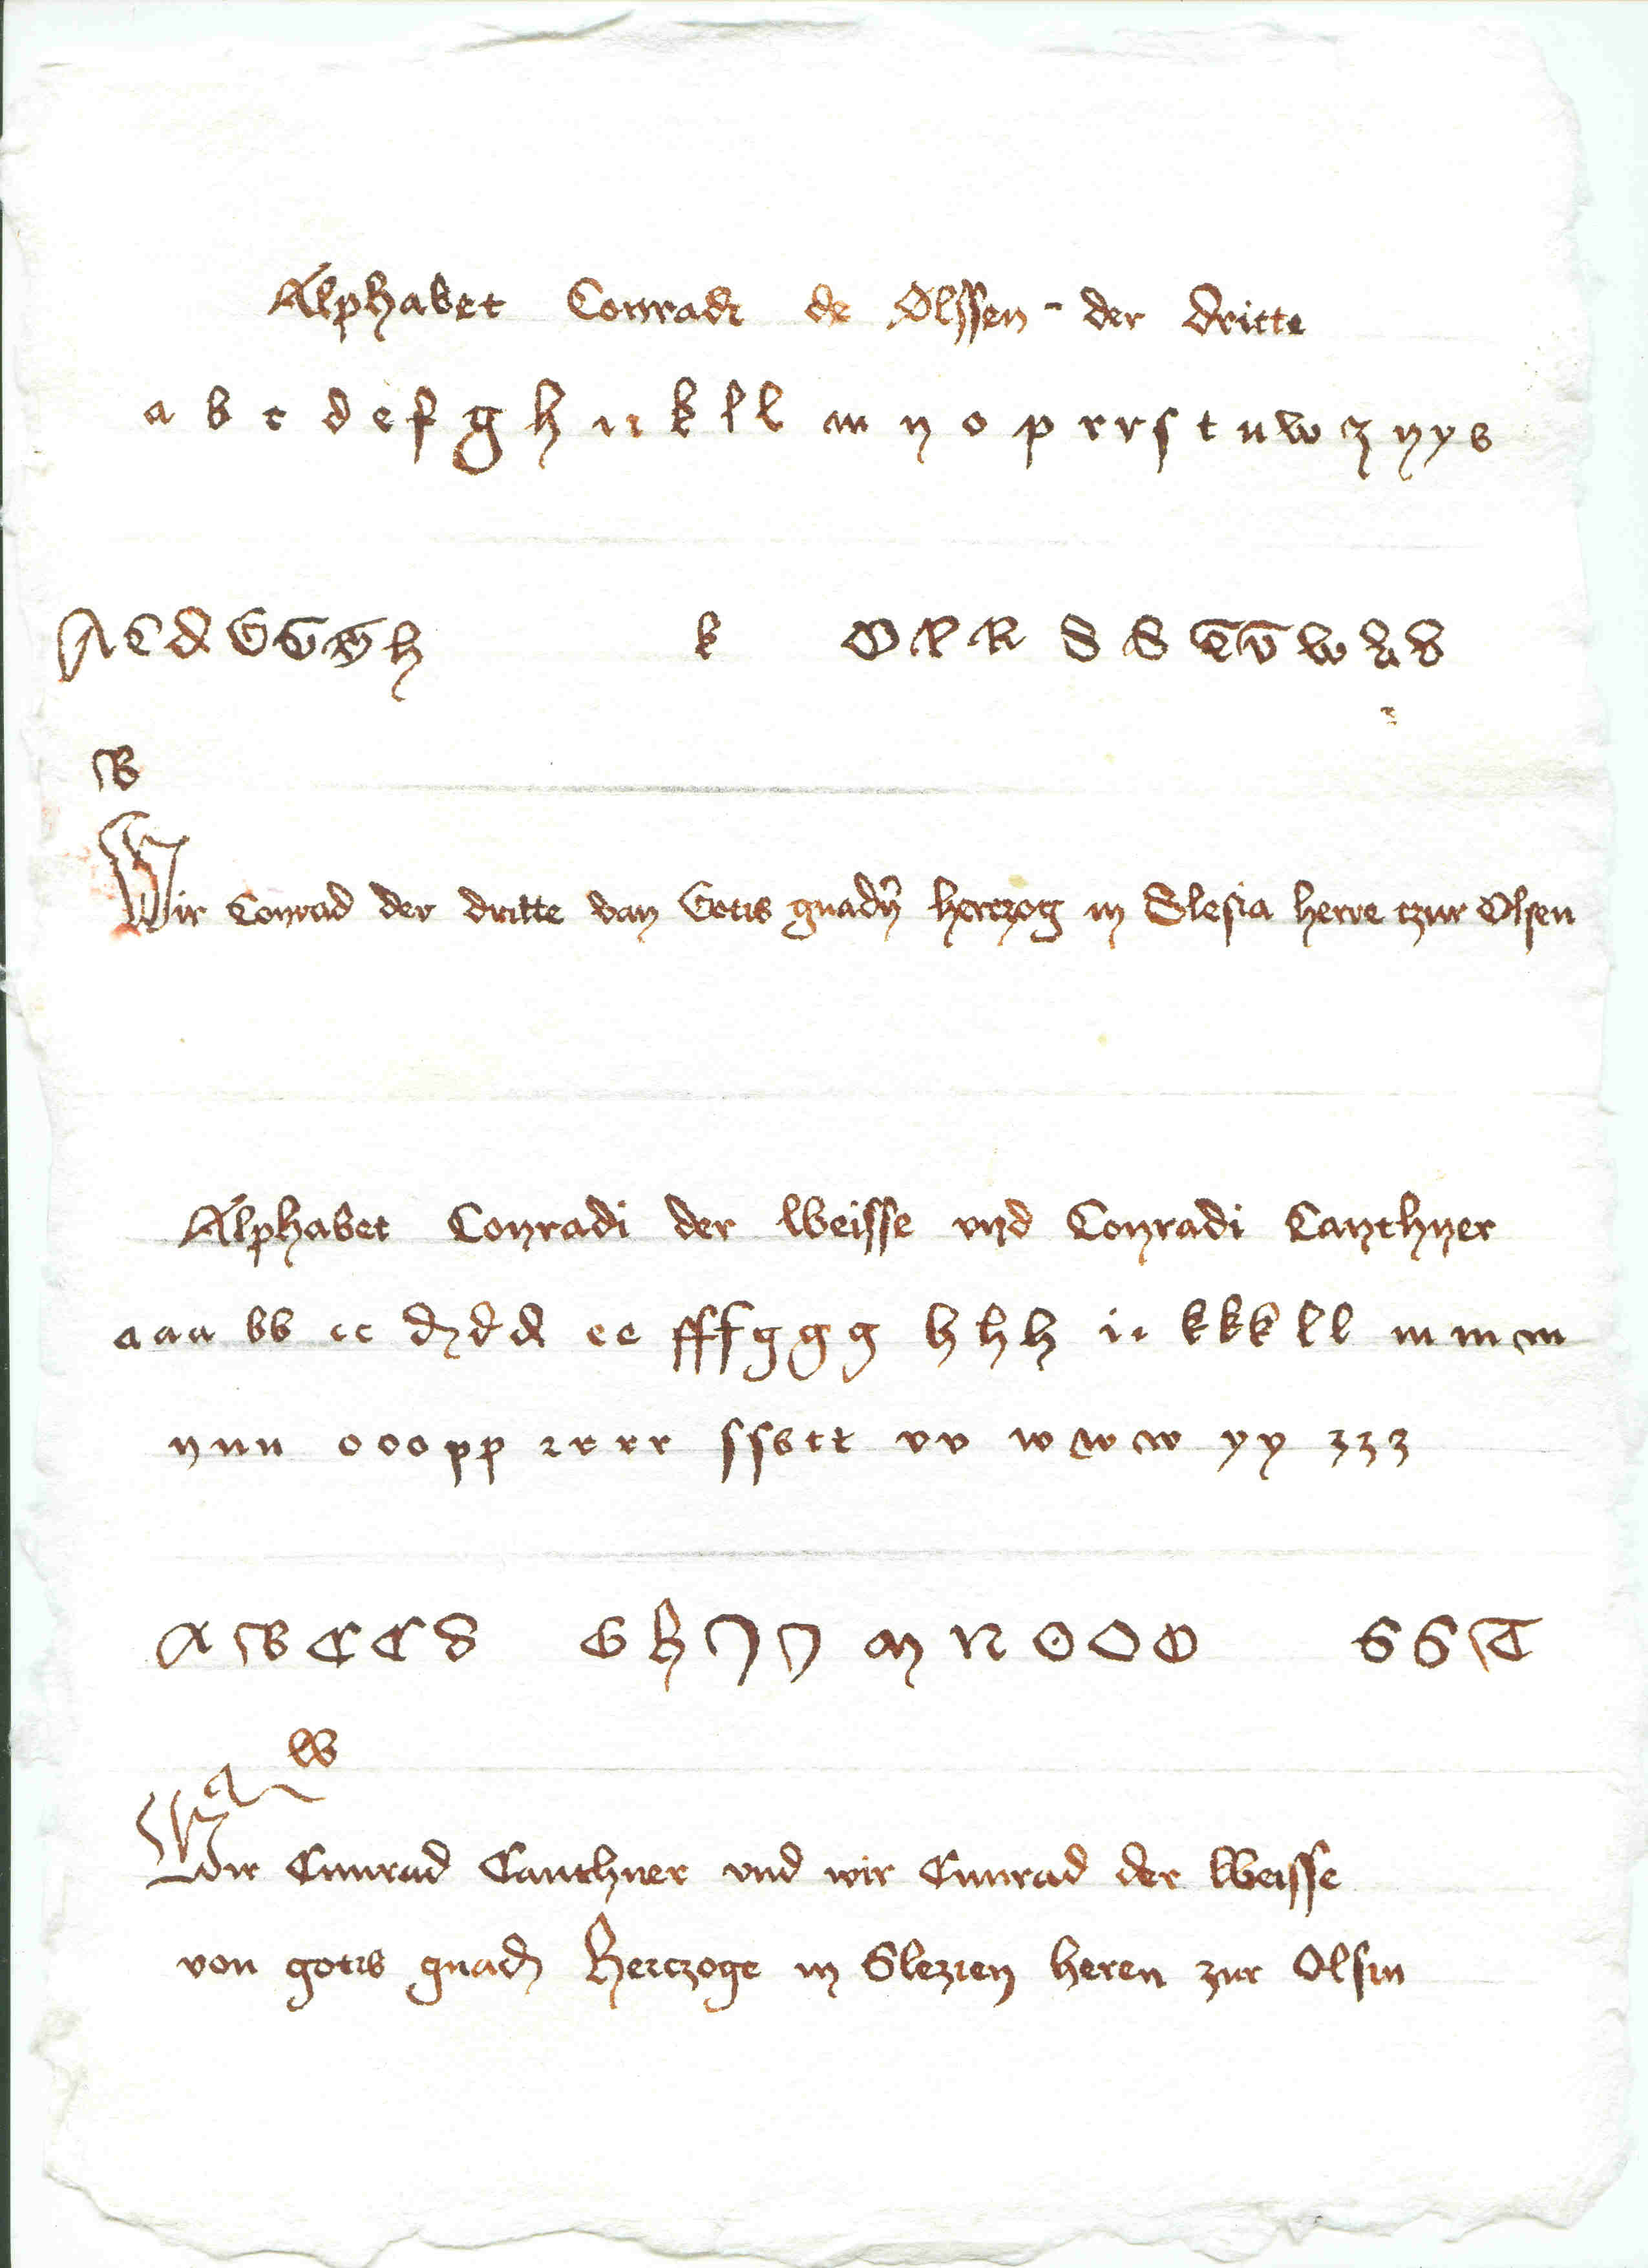 Alphabet Conradi de Olssen - der dritte
a b c d e f g h i i k l l m n o p r r s t u w z y y s
A C d G G G h k O P R S S T V W
B
Wir Conrad der dritte van Gotis gnadn̄ herczog in Slesia herre czur Olsen
Alphabet Conradi der Weisse vnd Conradi Canthner
a a a b b c c d d d e e f f f g g g h h h i i k k k l l m m m
n n n o o o p p r r r r s s s t t v v w w w y y z z z
A B C C D G H J J M N O O O S S T
W
Wir Cunrad Canthner vnd wir Cunrad der Weisse
von gotis gnadn Herczoge in Slezien heren zur Olsin